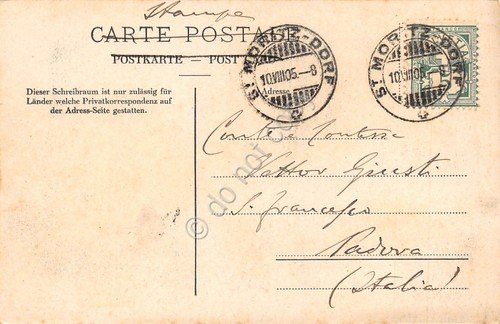 Stampe
CARTE POSTALE
POSTKARTE - POST
Dieser Schreibraum ist nur zulässig für
Länder welche Privatkorrespondenz auf
der Adress-Seite gestatten.
Adresse
ST MORITZ-DORF
10.VIII.05.-8
ST MORITZ-DORF
10.VIII.05
Conte e Contessa
Vettor Giusti
S. Francesco
Padova
(Italia)
© do not copy